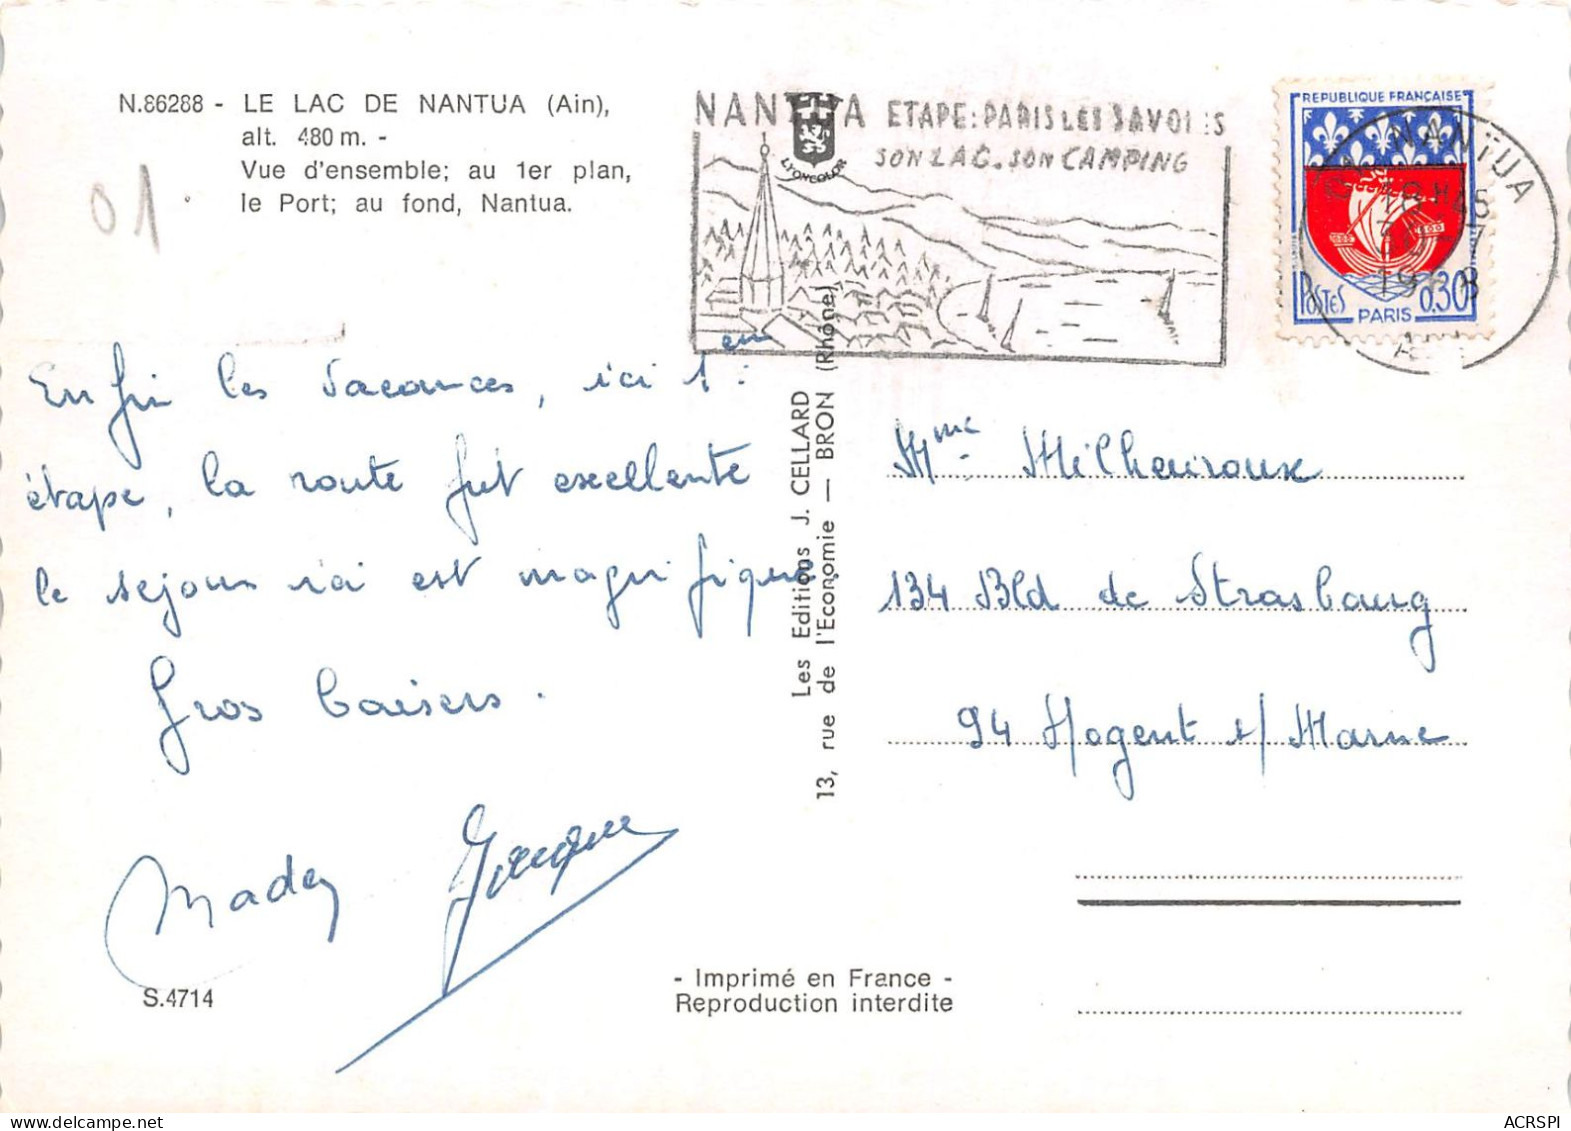 N.86288 - LE LAC DE NANTUA (Ain),
alt. 480 m. -
Vue d'ensemble; au 1er plan,
le Port; au fond, Nantua.
01
NANTUA ETAPE: PARIS LES SAVOIES
SON LAC. SON CAMPING
LYONCOLOR
REPUBLIQUE FRANÇAISE
POSTES
0.30
PARIS
NANTUA
18H45
Enfin les vacances, ici 1ère
étape, la route fut excellente
le sejour ici est magnifique.
Gros baisers.
Mady Jacques
S.4714
Les Editions J. CELLARD
13, rue de l'Economie — BRON (Rhône)
- Imprimé en France -
Reproduction interdite
Mme Milheuroux
134 Bld de Strasbourg
94 Nogent s/ Marne
ACRSPI